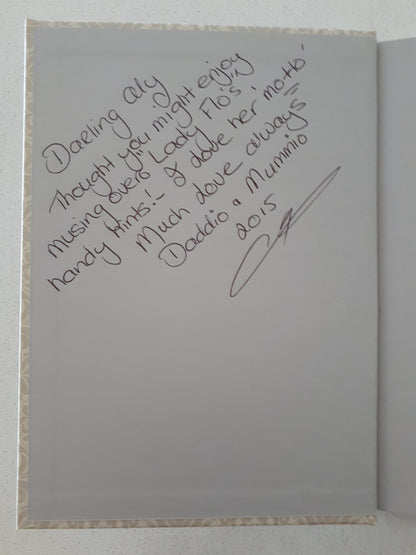 Darling Aly
Thought you might enjoy
musing over "Lady Flo's"
handy hints:- I love her 'motto'
Much love always
Daddio & Mummio
2015